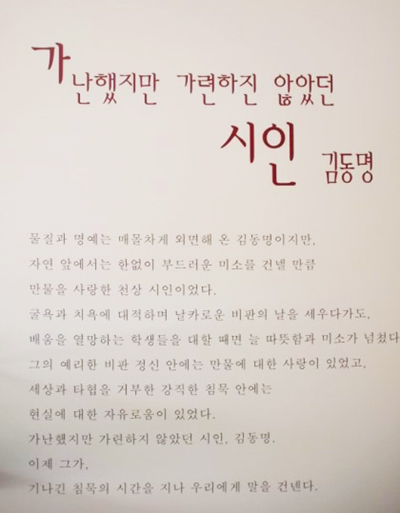 가난했지만 가련하진 않았던
시인 김동명
물질과 명예는 매몰차게 외면해 온 김동명이지만,
자연 앞에서는 한없이 부드러운 미소를 건넬 만큼
만물을 사랑한 천상 시인이었다.
굴욕과 치욕에 대적하며 날카로운 비판의 날을 세우다가도,
배움을 열망하는 학생들을 대할 때면 늘 따뜻함과 미소가 넘쳤다
그의 예리한 비판 정신 안에는 만물에 대한 사랑이 있었고,
세상과 타협을 거부한 강직한 침묵 안에는
현실에 대한 자유로움이 있었다.
가난했지만 가련하지 않았던 시인, 김동명.
이제 그가,
기나긴 침묵의 시간을 지나 우리에게 말을 건넨다.